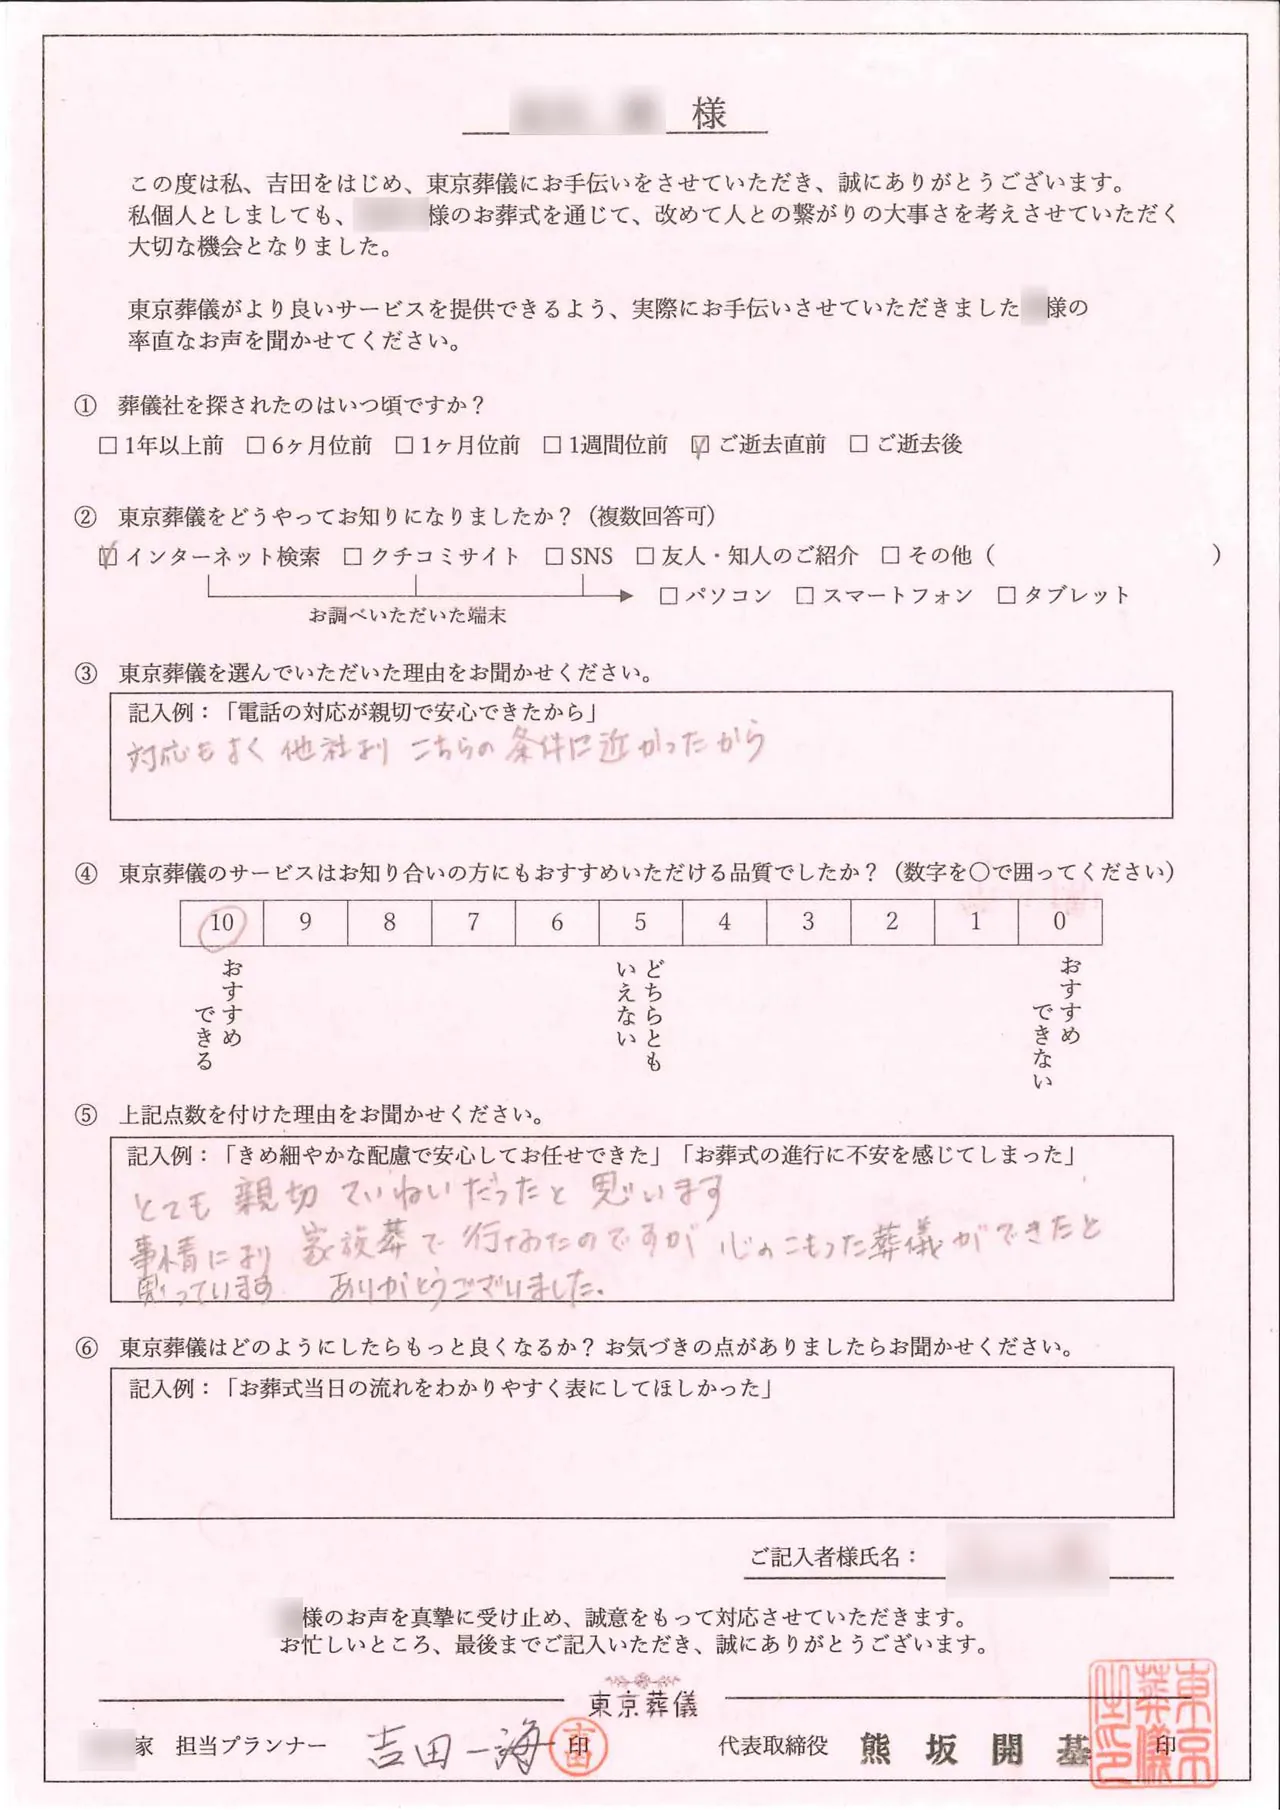 様
この度は私、吉田をはじめ、東京葬儀にお手伝いをさせていただき、誠にありがとうございます。
私個人としましても、様のお葬式を通じて、改めて人との繋がりの大事さを考えさせていただく
大切な機会となりました。
東京葬儀がより良いサービスを提供できるよう、実際にお手伝いさせていただきました様の
率直なお声を聞かせてください。
① 葬儀社を探されたのはいつ頃ですか？
□ 1年以上前 □ 6ヶ月位前 □ 1ヶ月位前 □ 1週間位前 ☑ ご逝去直前 □ ご逝去後
② 東京葬儀をどうやってお知りになりましたか？（複数回答可）
☑ インターネット検索 □ クチコミサイト □ SNS □ 友人・知人のご紹介 □ その他（ ）
お調べいただいた端末 □ パソコン □ スマートフォン □ タブレット
③ 東京葬儀を選んでいただいた理由をお聞かせください。
記入例：「電話の対応が親切で安心できたから」
対応もよく 他社より こちらの条件に近かったから
④ 東京葬儀のサービスはお知り合いの方にもおすすめいただける品質でしたか？（数字を〇で囲ってください）
10 9 8 7 6 5 4 3 2 1 0
おすすめできる どちらともいえない おすすめできない
⑤ 上記点数を付けた理由をお聞かせください。
記入例：「きめ細やかな配慮で安心してお任せできた」「お葬式の進行に不安を感じてしまった」
とても 親切 ていねいだったと 思います
事情により 家族葬で 行なったのですが 心のこもった葬儀ができたと
思っています ありがとうございました。
⑥ 東京葬儀はどのようにしたらもっと良くなるか？ お気づきの点がありましたらお聞かせください。
記入例：「お葬式当日の流れをわかりやすく表にしてほしかった」
ご記入者様氏名：
様のお声を真摯に受け止め、誠意をもって対応させていただきます。
お忙しいところ、最後までご記入いただき、誠にありがとうございます。
東京葬儀
家 担当プランナー 吉田一海 印 吉田 代表取締役 熊坂開基 印 東京葬儀之印